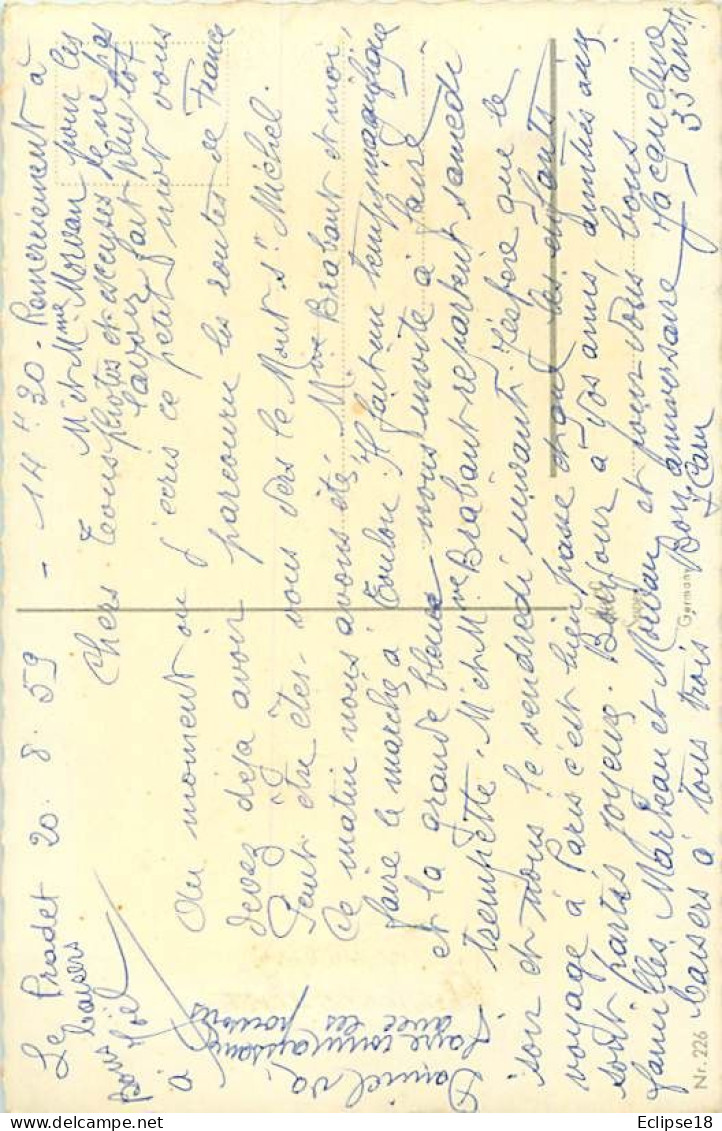 Le Pradet 20. 8. 59 - 14H 20 - Remerciement à
Mr et Mme Morvan pour les
photos et excuses de ne pas
l'avoir fait plus tôt
Chers Tous
Au moment où j'écris ce petit mot vous
devez déjà avoir parcouru les routes de France
Peut être êtes-vous vers le Mont St Michel.
Ce matin nous avons été, Mme Brabant et moi,
faire le marché à Toulon. Il fait un temps magnifique
et la grande bleue nous invite à faire
trempette. Mr et Mme Brabant repartent samedi
soir et nous le vendredi suivant. J'espère que le
voyage à Paris s'est bien passé et que les enfants
sont partis joyeux. Bonjour à vos amis, amitiés aux
familles Marteau et Morvan et pour vous bons
baisers à tous trois Bon anniversaire Jacqueline
35 ans!!
Bons baisers
à Joël
Daniel va
faire connaissance
avec les
Nr. 226
Germany
Delcampe.net
Eclipse18